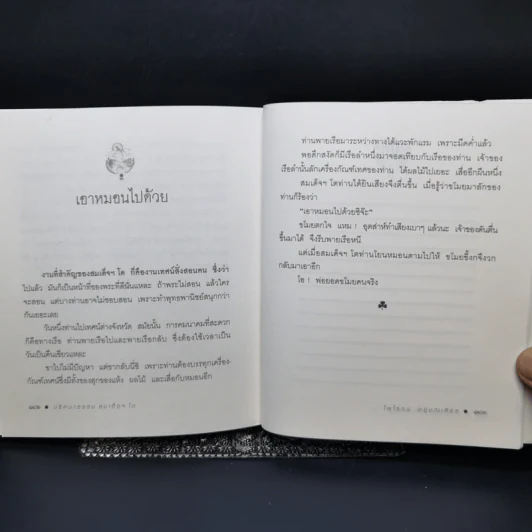 เอาหมอนไปด้วย
งานที่สำคัญของสมเด็จฯ โต ก็คืองานเทศน์สั่งสอนคน ซึ่งว่า
ไปแล้ว มันก็เป็นหน้าที่ของพระที่ดีนั่นแหละ ถ้าพระไม่สอน แล้วใคร
จะสอน แต่บางท่านอาจไม่ชอบสอน เพราะทำพุทธพาณิชย์สนุกกว่า
กันเยอะเลย
วันหนึ่งท่านไปเทศน์ต่างจังหวัด สมัยนั้น การคมนาคมที่สะดวก
ก็คือทางเรือ ท่านพายเรือไปและพายเรือกลับ ซึ่งต้องใช้เวลาเป็น
วันเป็นคืนเชียวแหละ
ขาไปไม่มีปัญหา แต่ขากลับนี่ซิ เพราะท่านต้องบรรทุกเครื่อง
กัณฑ์เทศน์ซึ่งมีทั้งของสุกของแห้ง ผลไม้ และเสื่อกับหมอนอีก
ปริศนาธรรม สมเด็จฯ โต
ท่านพายเรือมาระหว่างทางได้แวะพักแรม เพราะมืดค่ำแล้ว
พอดึกสงัดก็มีเรือลำหนึ่งมาจอดเทียบกับเรือของท่าน เจ้าของ
เรือลำนั้นลักเครื่องกัณฑ์เทศน์ของท่าน ได้ผลไม้ไปเยอะ เสื่ออีกผืนหนึ่ง
สมเด็จฯ โตท่านได้ยินเสียงจึงตื่นขึ้น เมื่อรู้ว่าขโมยมาลักของ
ท่านก็ร้องว่า
"เอาหมอนไปด้วยซิจ๊ะ"
ขโมยตกใจ แหม ! อุตส่าห์ทำเสียงเบาๆ แล้วนะ เจ้าของดันตื่น
ขึ้นมาได้ จึงรีบพายเรือหนี
แต่เมื่อสมเด็จฯ โตท่านโยนหมอนตามไปให้ ขโมยซึ้งกึงวก
กลับมาเอาอีก
โอ ! พ่อยอดขโมยคนจริง